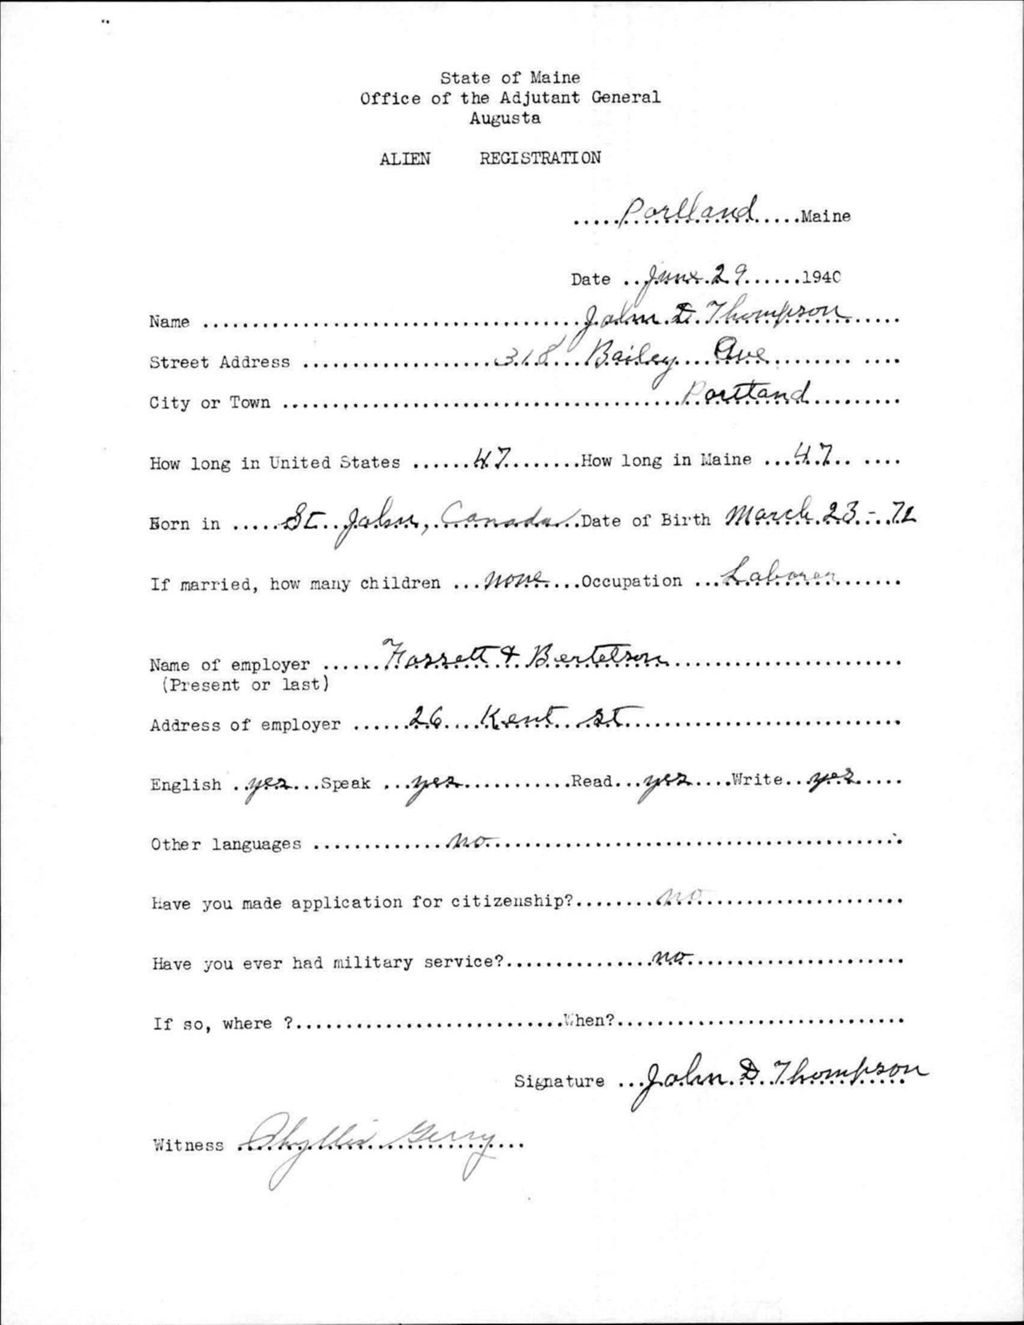 State of Maine
Office of the Adjutant General
Augusta
ALIEN REGISTRATION
.....Portland.....Maine
Date ..June 29......1940
Name ..........John D. Thompson......
Street Address ..........318 Bailey Ave..........
City or Town ..........Portland..........
How long in United States ......47........How long in Maine ...47.. ....
Born in .....St. John, Canada..Date of Birth March 23-72
If married, how many children ...none...Occupation ...Laborer......
Name of employer ......& Bertelson..........
(Present or last)
Address of employer ......26 Kent St..........
English ..yes...Speak ...yes..........Read...yes....Write...yes.....
Other languages ..........no..........
Have you made application for citizenship?........no..........
Have you ever had military service?..........no..........
If so, where ?..........When?..........
Signature ...John D Thompson
Witness Phyllis Gerry...